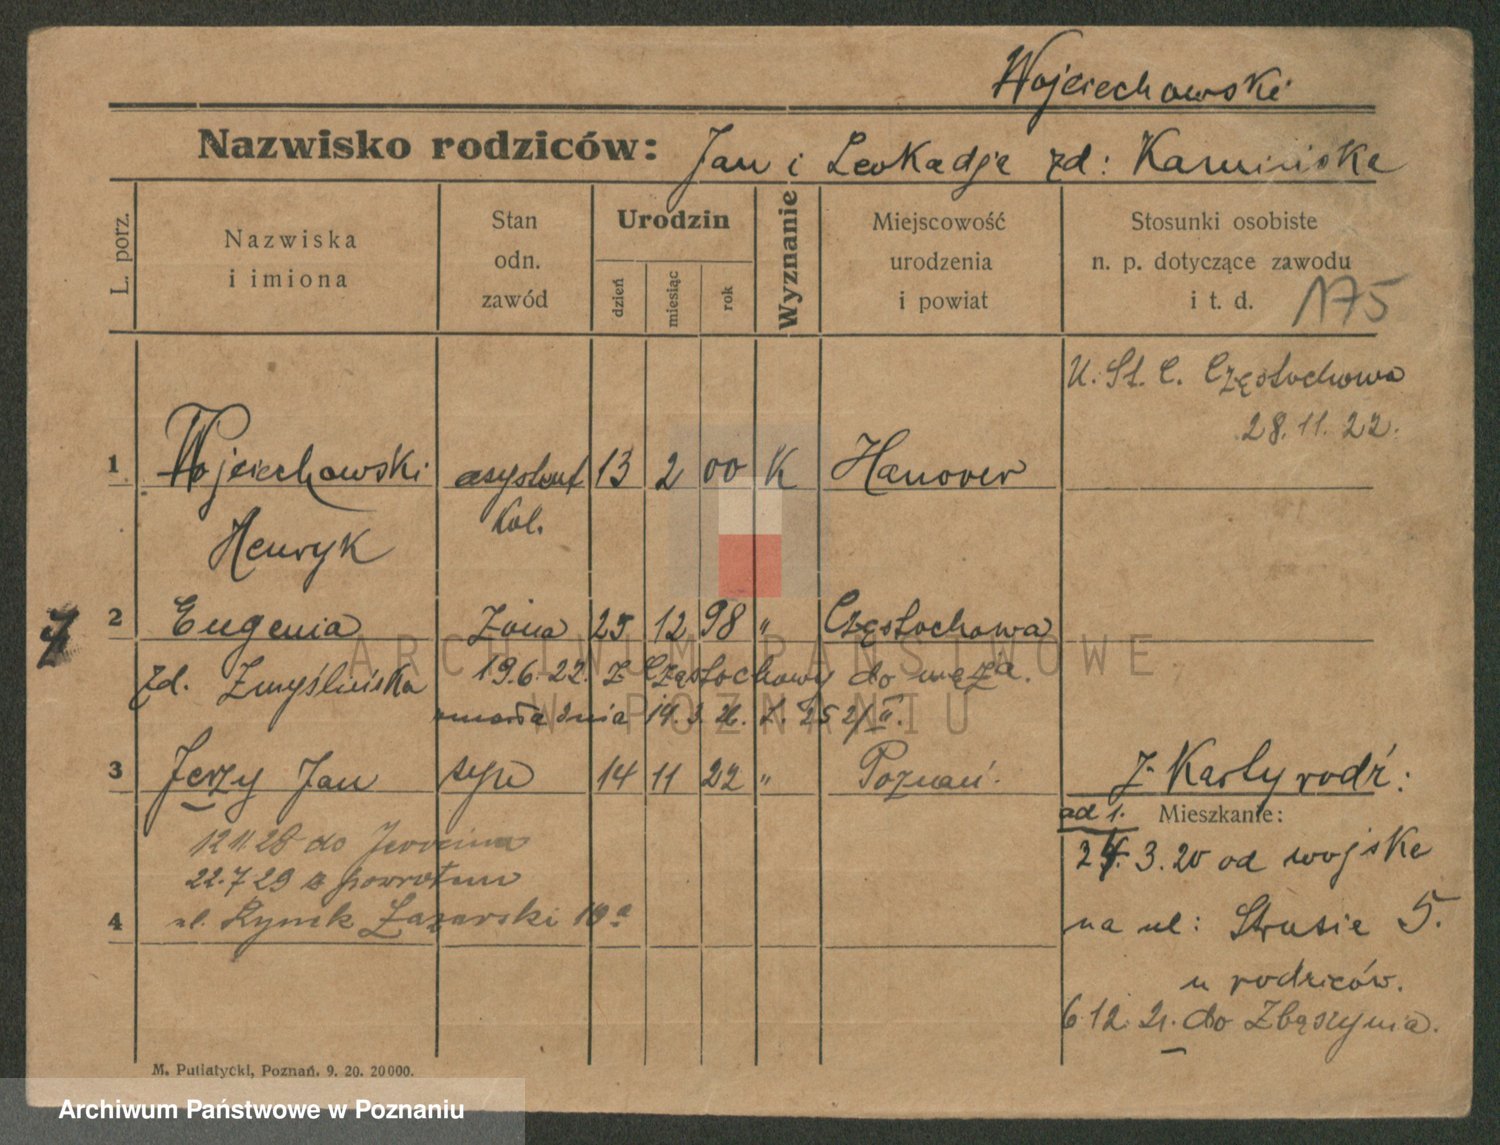 Wojciechowski
Nazwisko rodziców: Jan i Leokadja zd: Kamińska
L. porz.
Nazwiska
i imiona
Stan
odn.
zawód
Urodzin
dzień
miesiąc
rok
Wyznanie
Miejscowość
urodzenia
i powiat
Stosunki osobiste
n. p. dotyczące zawodu
i t. d.
175
U. St. C. Częstochowa
28.11.22.
1 Wojciechowski asystent 13 2 00 K Hanover
Henryk kol.
2 Eugenia żona 25 12 98 " Częstochowa
zd. Zmyślińska 19.6.22. z Częstochowy do męża.
umarła dnia 14. 3. 26.
3 Jerzy Jan syn 14 11 22 " Poznań.
z Karty rodz:
ad 1. Mieszkanie:
12 11.28 do
22.7 29 z powrotem
4 ul. Rynek Łazarski 10a
24. 3. 20 od wojska
na ul: Strusia 5.
u rodziców.
6.12. 21. do Zbąszynia.
M. Putiatycki, Poznań. 9. 20. 20000.
ARCHIWUM PAŃSTWOWE
W POZNANIU
Archiwum Państwowe w Poznaniu